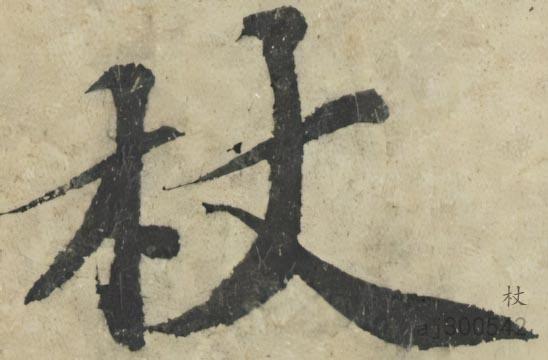 杖
杖
a1300542